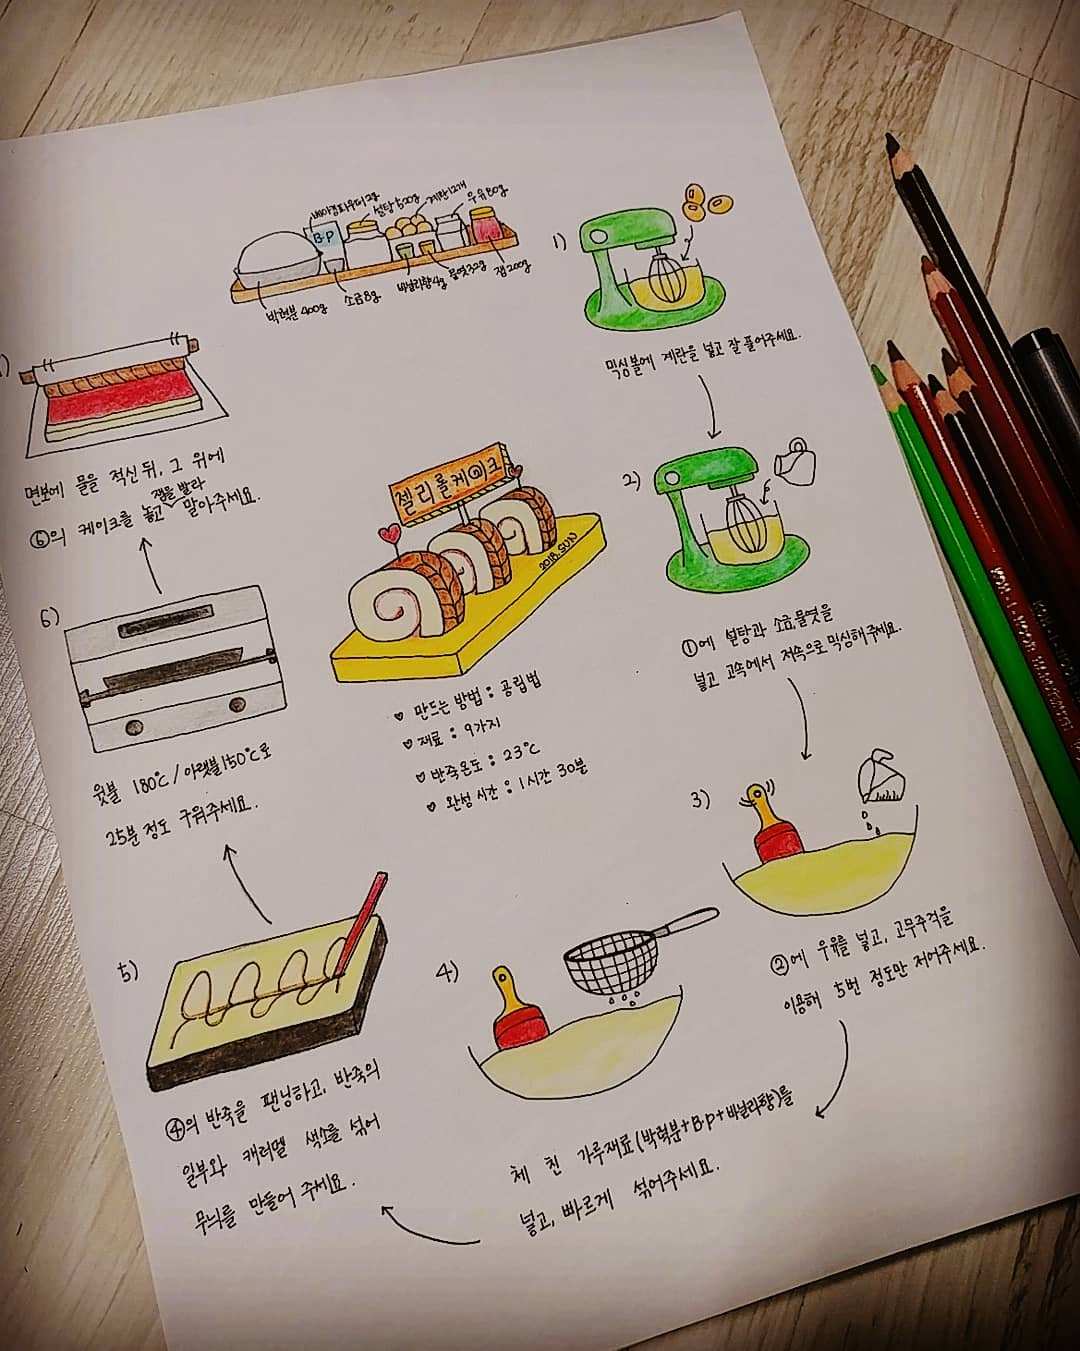 베이킹파우더 2g
설탕 500g
계란 12개
우유 80g
B.P
박력분 400g
소금 8g
바닐라향 4g
물엿 32g
잼 200g
1)
믹싱볼에 계란을 넣고 잘 풀어주세요.
2)
①에 설탕과 소금, 물엿을
넣고 고속에서 저속으로 믹싱해주세요.
3)
②에 우유를 넣고, 고무주걱을
이용해 5번 정도만 저어주세요.
4)
체 친 가루재료(박력분+B.P+바닐라향)를
넣고, 빠르게 섞어주세요.
5)
④의 반죽을 팬닝하고, 반죽의
일부와 캐러멜 색소를 섞어
무늬를 만들어 주세요.
6)
윗불 180℃/아랫불 150℃로
25분 정도 구워주세요.
면보에 물을 적신 뒤, 그 위에
⑥의 케이크를 놓고 잼을 발라 말아주세요.
젤리롤케이크
2018. SUN
♡ 만드는 방법 : 공립법
♡ 재료 : 9가지
♡ 반죽온도 : 23℃
♡ 완성 시간 : 1시간 30분